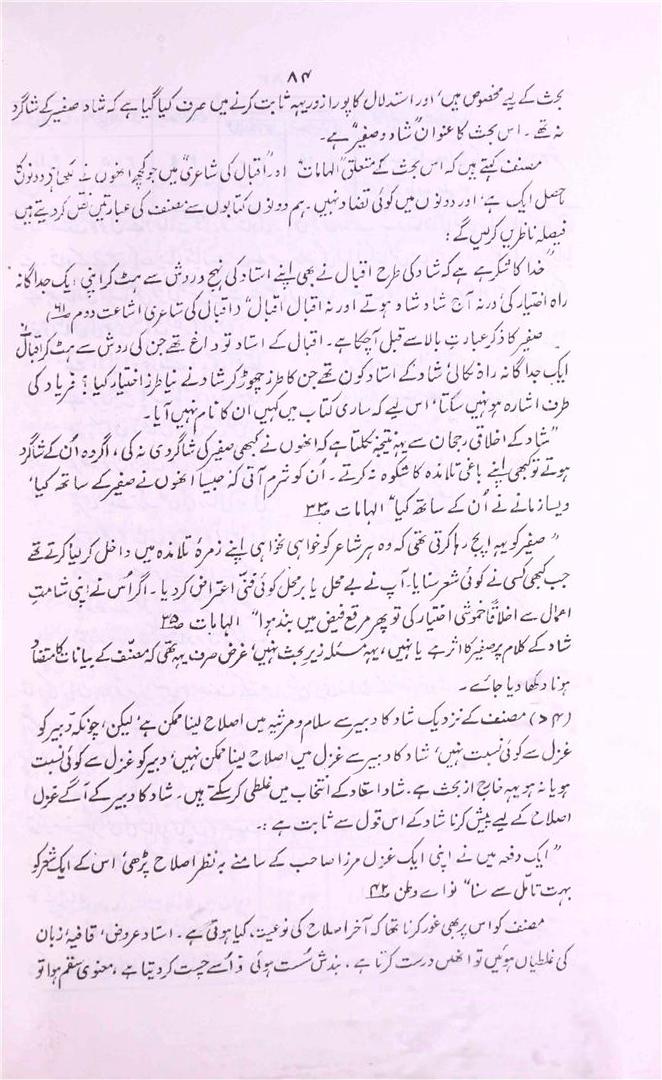 ۸۴
بحث کے لیے مخصوص ہیں' اور استدلال کا پورا زور یہہ ثابت کرنے میں صرف کیا گیا ہے کہ شاد صفیر کے شاگرد
نہ تھے ۔ اس بحث کا عنوان "شاد و صفیر" ہے۔
مصنف کہتے ہیں کہ اس بحث کے متعلق "الہامات" اور "اقبال کی شاعری" میں جو کچھ انھوں نے لکھا ہے دونوں کا
ماحصل ایک ہے' اور دونوں میں کوئی تضاد نہیں ۔ ہم دونوں کتابوں سے مصنف کی عبارتیں نقل کر دیتے ہیں
فیصلہ ناظریں کریں گے :
"خدا کا شکر ہے ہے کہ شاد کی طرح اقبال نے بھی اپنے استاد کی نہج و روش سے ہٹ کر اپنی ایک جداگانہ
راہ اختیار کی ورنہ آج شاد شاد ہوتے اور نہ اقبال اقبال" (اقبال کی شاعری اشاعت دوم ص۶۱)
صفیر کا ذکر عبارتِ بالا سے قبل آچکا ہے ۔ اقبال کے استاد تو داغ تھے جن کی روش سے ہٹ کر اقبال نے
ایک جداگانہ راہ نکالی' شاد کے استاد کون تھے جن کا طرز چھوڑ کر شاد نے نیا طرز اختیار کیا ؟ فریاد کی
طرف اشارہ ہو نہیں سکتا' اس لیے کہ ساری کتاب میں کہیں ان کا نام نہیں آیا ۔
"شاد کے اخلاقی رجحان سے یہہ نتیجہ نکلتا ہے کہ انھوں نے کبھی صفیر کی شاگردی نہ کی ، اگر وہ اُن کے شاگرد
ہوتے تو کبھی اپنے باغی تلامذہ کا شکوہ نہ کرتے ۔ اُن کو شرم آتی کہ جیسا انھوں نے صفیر کے ساتھ کیا'
ویسا زمانے نے اُن کے ساتھ کیا" الہامات ص۳۳
"صفیر کو یہہ اپچ رہا کرتی تھی کہ وہ ہر شاعر کو خواہی نخواہی اپنے زمرۂ تلامذہ میں داخل کر لیا کرتے تھے
جب کبھی کسی نے کوئی شعر سنایا ۔ آپ نے بے محل یا بر محل کوئی فنّی اعتراض کر دیا ۔ اگر اُس نے اپنی شامتِ
اعمال سے اخلاقاً خموشی اختیار کی تو پھر مرقعِ فیض میں بند ہوا" الہامات ص۳۵
شاد کے کلام پر صفیر کا اثر ہے یا نہیں' یہہ مسئلہ زیر بحث نہیں' غرض صرف یہہ تھی کہ مصنّف کے بیانات کا متضاد
ہونا دکھا دیا جائے ۔
مصنف کے نزدیک شاد کا دبیر سے سلام و مرثیہ میں اصلاح لینا ممکن ہے' لیکن' چونکہ دبیر کو
غزل سے کوئی نسبت نہیں' شاد کا دبیر سے غزل میں اصلاح لینا ممکن نہیں' دبیر کو غزل سے کوئی نسبت
ہو یا نہ ہو یہہ خارج از بحث ہے ۔ شاد استاد کے انتخاب میں غلطی کر سکتے ہیں ۔ شاد کا دبیر کے آگے غزل
اصلاح کے لیے پیش کرنا شاد کے اس قول سے ثابت ہے :۔
"ایک دفعہ میں نے اپنی ایک غزل مرزا صاحب کے سامنے بہ نظر اصلاح پڑھی' اس کے ایک شعر کو
بہت تامّل سے سنا" نواے وطن ص۴۲
مصنف کو اس پر بھی غور کرنا تھا کہ آخر اصلاح کی نوعیت کیا ہوتی ہے ۔ استاد عروض' قافیہ' زبان
کی غلطیاں ہوئیں تو انھیں درست کرتا ہے ، بندش سُست ہوئی تو اُسے چست کر دیتا ہے ، معنوی سقم ہوا تو